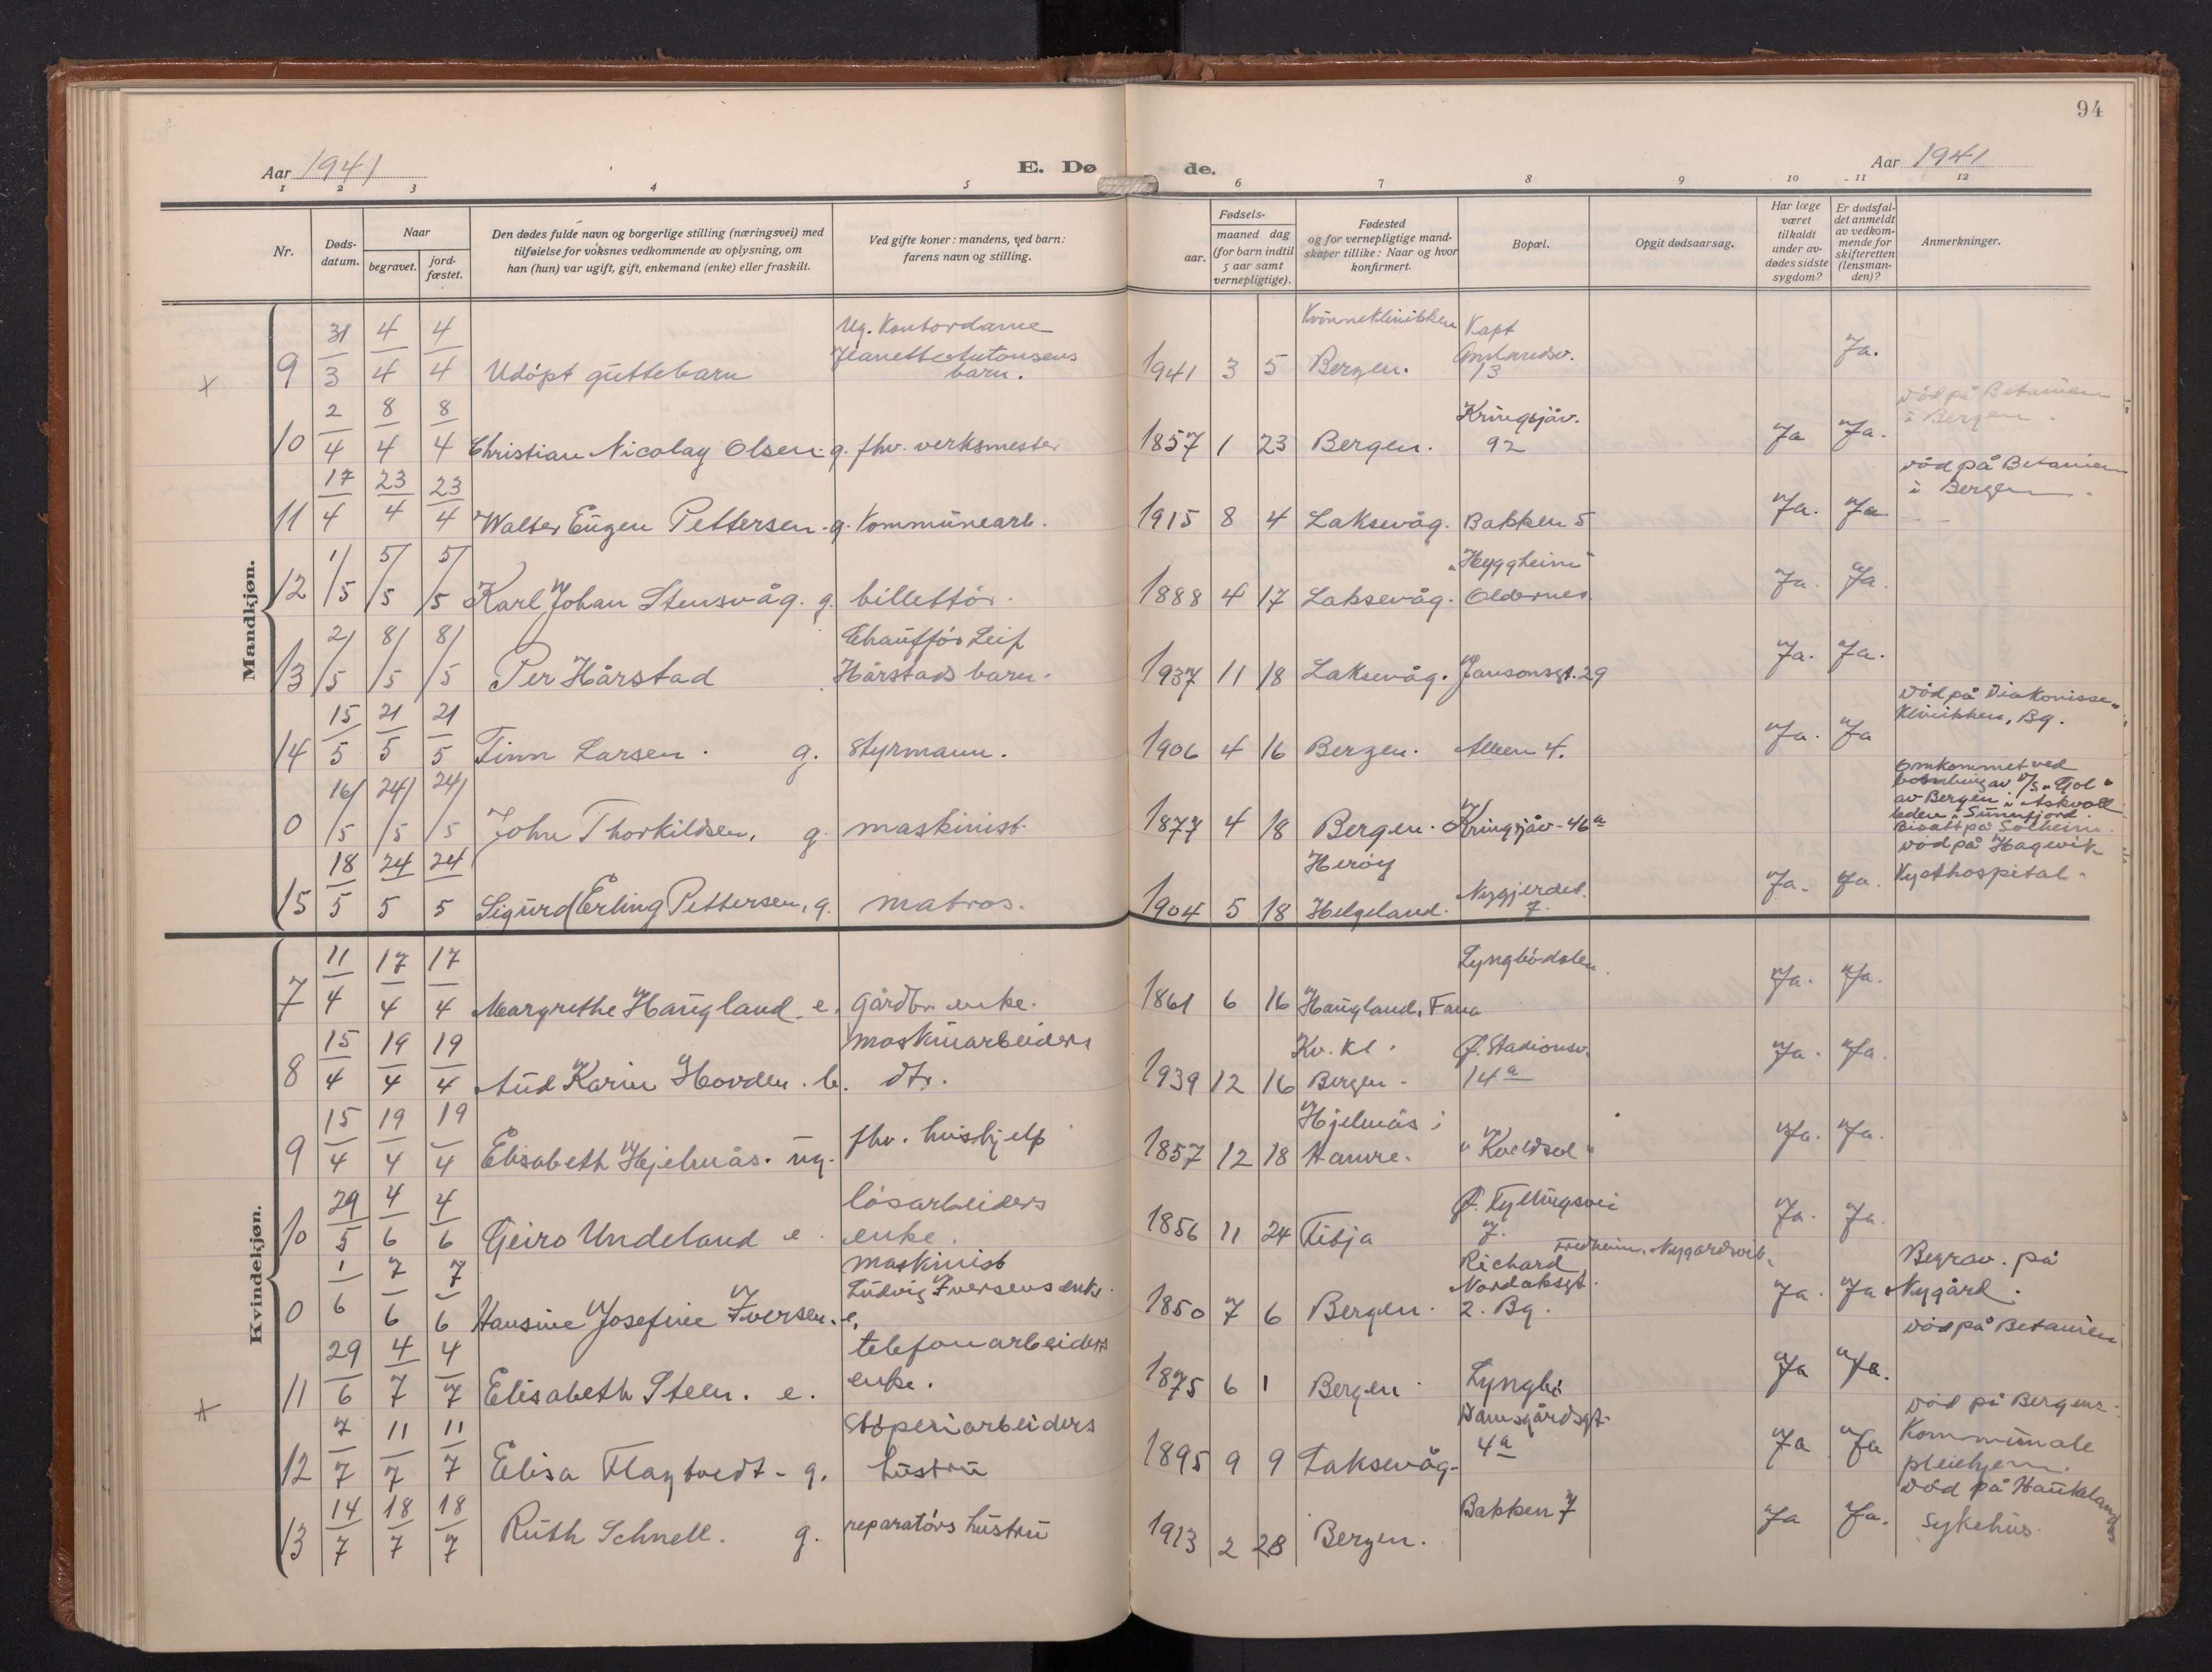 94
Aar 1941
E. Dø
de.
Aar 1941
1 2 3 4 5 6 7 8 9 10 11 12
Nr.
Døds-
datum.
Naar
begravet.
jord-
fæstet.
Den dødes fulde navn og borgerlige stilling (næringsvei) med
tilføielse for voksnes vedkommende av oplysning, om
han (hun) var ugift, gift, enkemand (enke) eller fraskilt.
Ved gifte koner: mandens, ved barn:
farens navn og stilling.
Fødsels-
aar.
maaned dag
(for barn indtil
5 aar samt
vernepligtige).
Fødested
og for vernepligtige mand-
skaper tillike: Naar og hvor
konfirmert.
Bopæl.
Opgit dødsaarsag.
Har læge
været
tilkaldt
under av-
dødes sidste
sygdom?
Er dødsfal-
det anmeldt
av vedkom-
mende for
skifteretten
(lensman-
den)?
Anmerkninger.
Mandkjøn.
Ug. Kontordame
Kvinneklinikken Kapt
9 31/3 4/4 4/4 Udöpt guttebarn Jeanett Antonsens
barn. 1941 3 5 Bergen. Amlandsv.
13 Ja.
död på Betanien
i Bergen.
10 2/4 8/4 8/4 Christian Nicolay Olsen. g. fhv. verksmester 1857 1 23 Bergen. Kringsjåv.
92 Ja Ja.
död på Betanien
i Bergen.
11 17/4 23/4 23/4 Walter Eugen Pettersen. g. Kommunearb. 1915 8 4 Laksevåg. Bakken 5 Ja. Ja
12 1/5 5/5 5/5 Karl Johan Stensvåg. g. billettör. 1888 4 17 Laksevåg. "Heggheim"
Oldernes. Ja. Ja.
13 2/5 8/5 8/5 Per Hårstad Chaufför Leif
Hårstads barn. 1937 11 18 Laksevåg. Jansonsgt. 29 Ja. Ja.
14 15/5 21/5 21/5 Finn Larsen. g. Styrmann. 1906 4 16 Bergen. Alleen 4. Ja. Ja
död på Diakonisse-
klinikken, Bg.
0 16/5 24/5 24/5 John Thorkildsen, g. maskinist. 1877 4 18 Bergen. Kringsjåv. 46a
Omkommet ved
bombing av D/S "Gol"
av Bergen i Askvoll
leden i Sunnfjord.
Bisatt på Solheim.
15 18/5 24/5 24/5 Sigurd Erling Pettersen, g. matros. 1904 5 18 Heröy
Helgeland. Nygjerdet.
7. Ja. Ja.
död på Hagevik
Kysthospital.
Kvindekjøn.
7 11/4 17/4 17/4 Margrethe Haugland. e. gårdbr. enke. 1861 6 16 Haugland, Fana Lyngbödalen Ja. Ja.
8 15/4 19/4 19/4 Aud Karin Hovden. b. maskinarbeiders
dtr. 1939 12 16 Kv. kl.
Bergen. Ö. Stadionsv.
14a Ja. Ja.
9 15/4 19/4 19/4 Elisabeth Hjelmås. ug. fhv. hushjelp 1857 12 18 Hjelmås i
Hamre. "Kveldsol" Ja. Ja.
10 29/5 4/6 4/6 Geiro Undeland e. lösarbeiders
enke. 1856 11 24 Titja Ö. Fyllingsvei
7. Ja. Ja.
0 1/6 7/6 7/6 Hansine Josefine Iversen. e. maskinist
Ludvig Iversens enke. 1850 7 6 Bergen. Richard
Nordaksgt.
2. Bg. Fredheim, Nygardsvik. Ja. Ja
Begrav. på
Nygård.
11 29/6 4/7 4/7 Elisabeth Steen. e. telefonarbeiders
enke. 1875 6 1 Bergen Lyngbö Ja Ja.
död på Betanien
12 7/7 11/7 11/7 Elisa Flaytvedt. g. Stöperiarbeiders
hustru 1895 9 9 Laksevåg. Damsgårdsgt.
4a Ja Ja
död på Bergens
Kommunale
pleiehjem.
13 14/7 18/7 18/7 Ruth Schnell. g. reparatörs hustru 1913 2 28 Bergen. Bakken 7 Ja Ja.
död på Hauklands
sykehus.